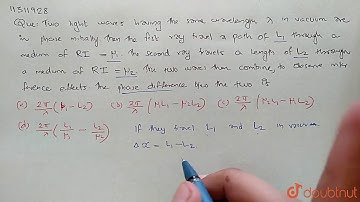 11311928
Que. Two light waves having the same wavelength λ in vacuum are
in phase initially then the first ray travels a path of L₁ through a
medium of RI = μ₁. The second ray travels a length of L₂ through
a medium of RI = μ₂. The two waves then combine to observe inter
ference effects the phase difference b/w the two is
(a) 2π/λ (L₁ - L₂) (b) 2π/λ (μ₁L₁ - μ₂L₂) (c) 2π/λ (μ₂L₁ - μ₁L₂)
(d) 2π/λ (L₁/μ₁ - L₂/μ₂)
If they travel L₁ and L₂ in vacuum
Δx = L₁-L₂
doubtnut